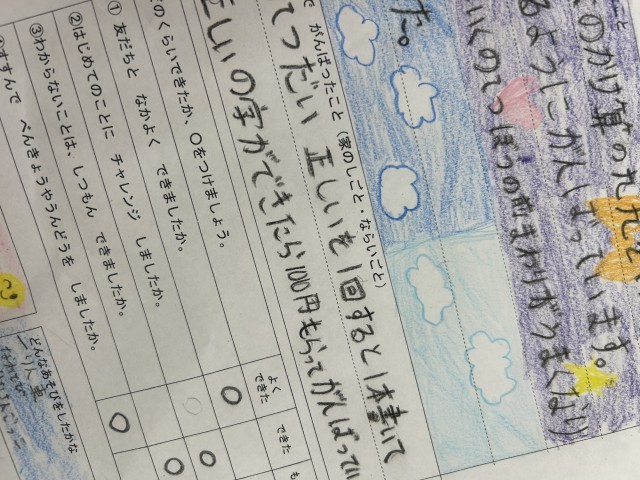 のかけ算の九九と
るようにがんばっています。
のてつぼうの前まわりがうまくなり
た。
がんばったこと（家のしごと・ならいごと）
てつだい 正しいを1回すると1本書いて
正しいの字ができたら100円もらってがんばってい
のくらいできたか、○をつけましょう。
よくできた
できた
も
①友だちと なかよく できましたか。
②はじめてのことに チャレンジ しましたか。
③わからないことは、しつもん できましたか。
すすんで べんきょうやうんどうを しましたか。
どんなあそびをしたかな